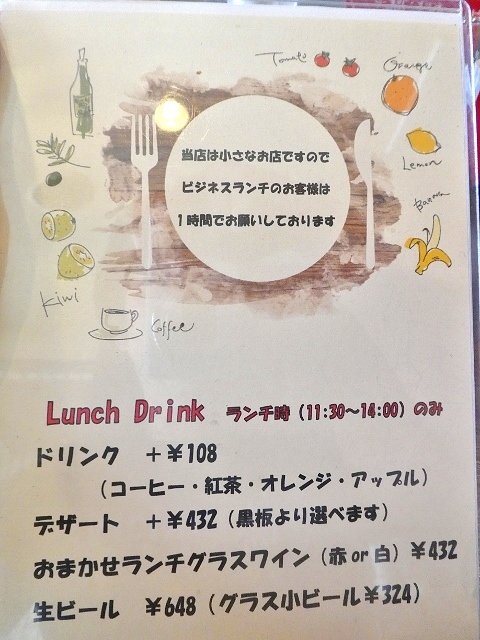 Tomato
Orange
Lemon
Banana
当店は小さなお店ですので
ビジネスランチのお客様は
1時間でお願いしております
Kiwi
Coffee
Lunch Drink ランチ時(11:30～14:00)のみ
ドリンク +¥108
(コーヒー・紅茶・オレンジ・アップル)
デザート +¥432(黒板より選べます)
おまかせランチグラスワイン(赤or白)¥432
生ビール ¥648(グラス小ビール¥324)